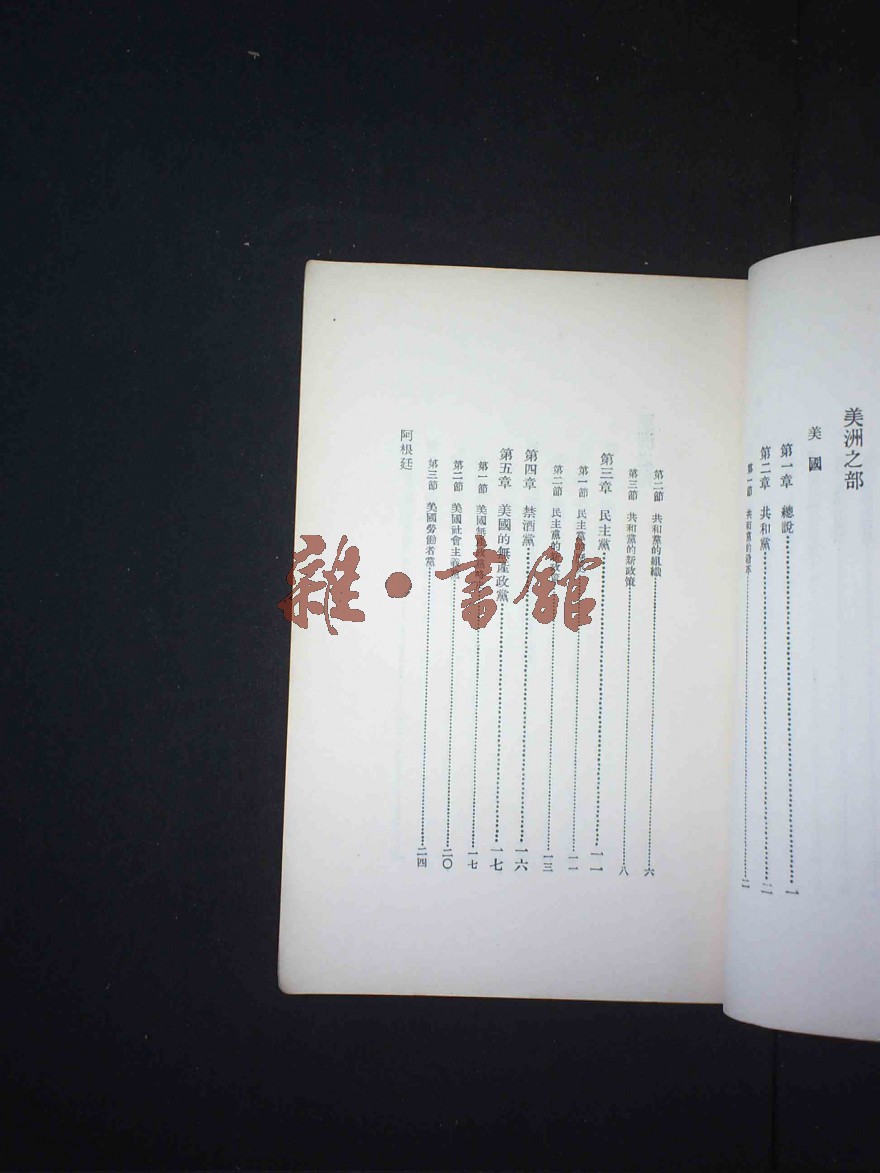 美洲之部
美國
第一章 總說 一
第二章 共和黨 二
第一節 共和黨的 二
第二節 共和黨的組織 六
第三節 共和黨的新政策 八
第三章 民主黨 一一
第一節 民主黨 一一
第二節 民主黨的 一三
第四章 禁酒黨 一六
第五章 美國的無產政黨 一七
第一節 美國無產政黨 一七
第二節 美國社會主義黨 二〇
第三節 美國勞働者黨 二四
阿根廷
雜·書館